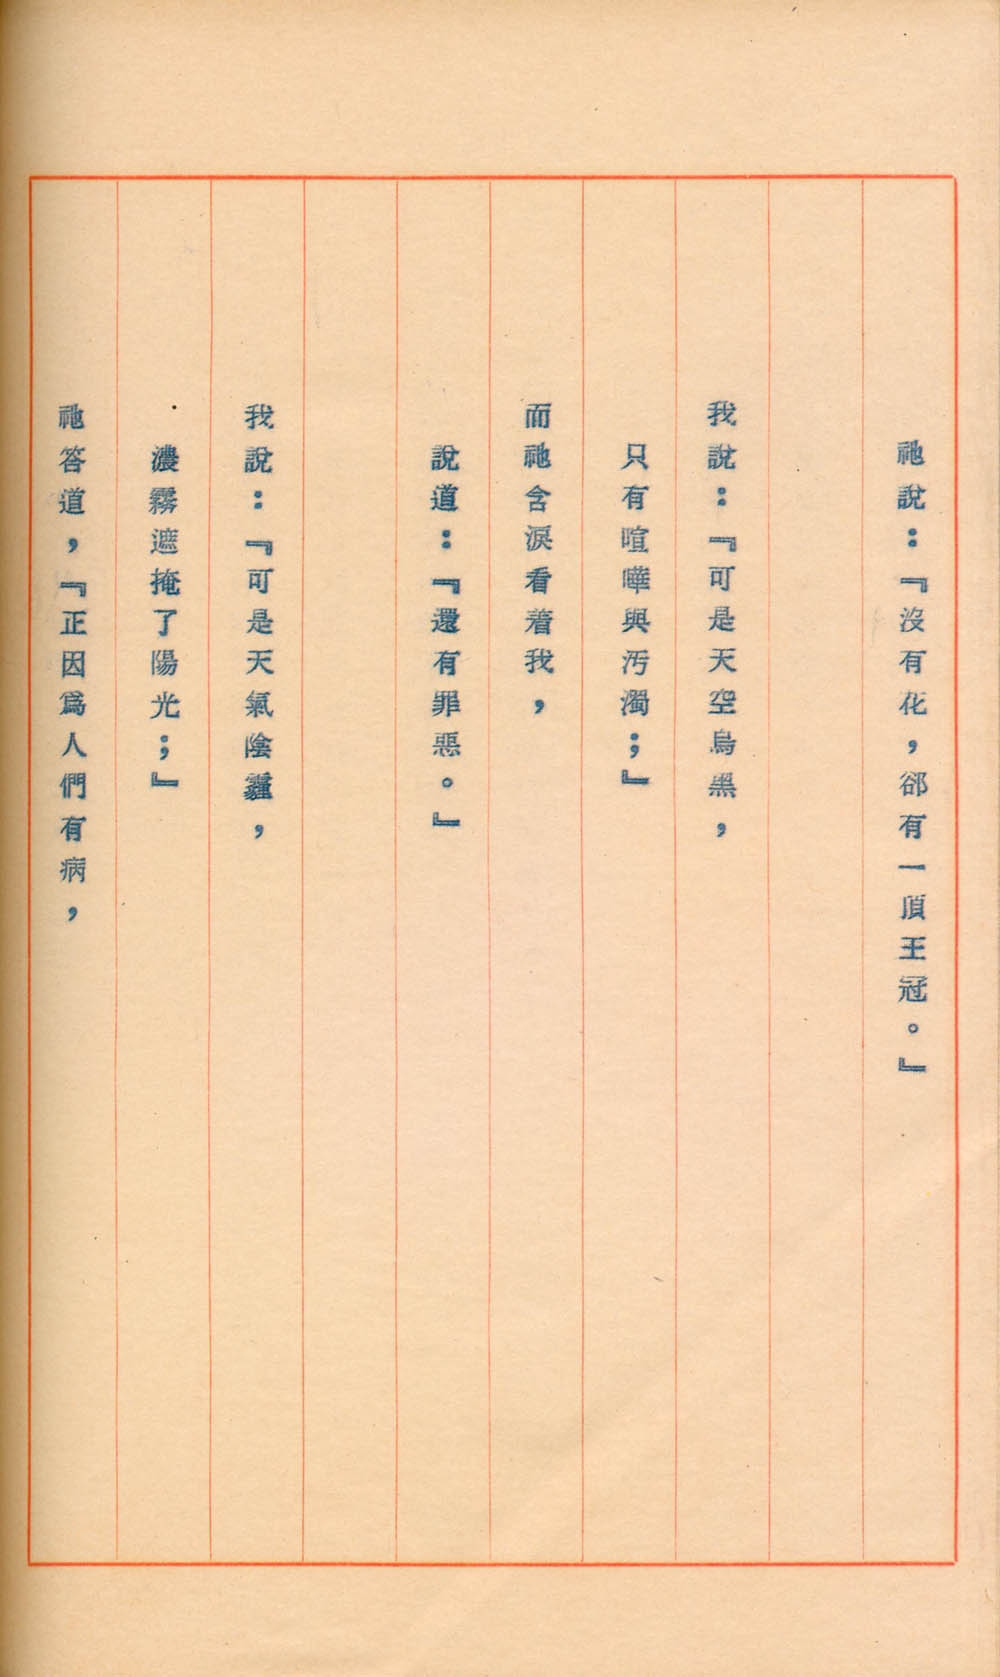 祂說：『沒有花，郤有一頂王冠。』
我說：『可是天空烏黑，
只有喧嘩與汚濁；』
而祂含淚看着我，
說道：『還有罪惡。』
我說：『可是天氣陰霾，
濃霧遮掩了陽光；』
祂答道，『正因爲人們有病，